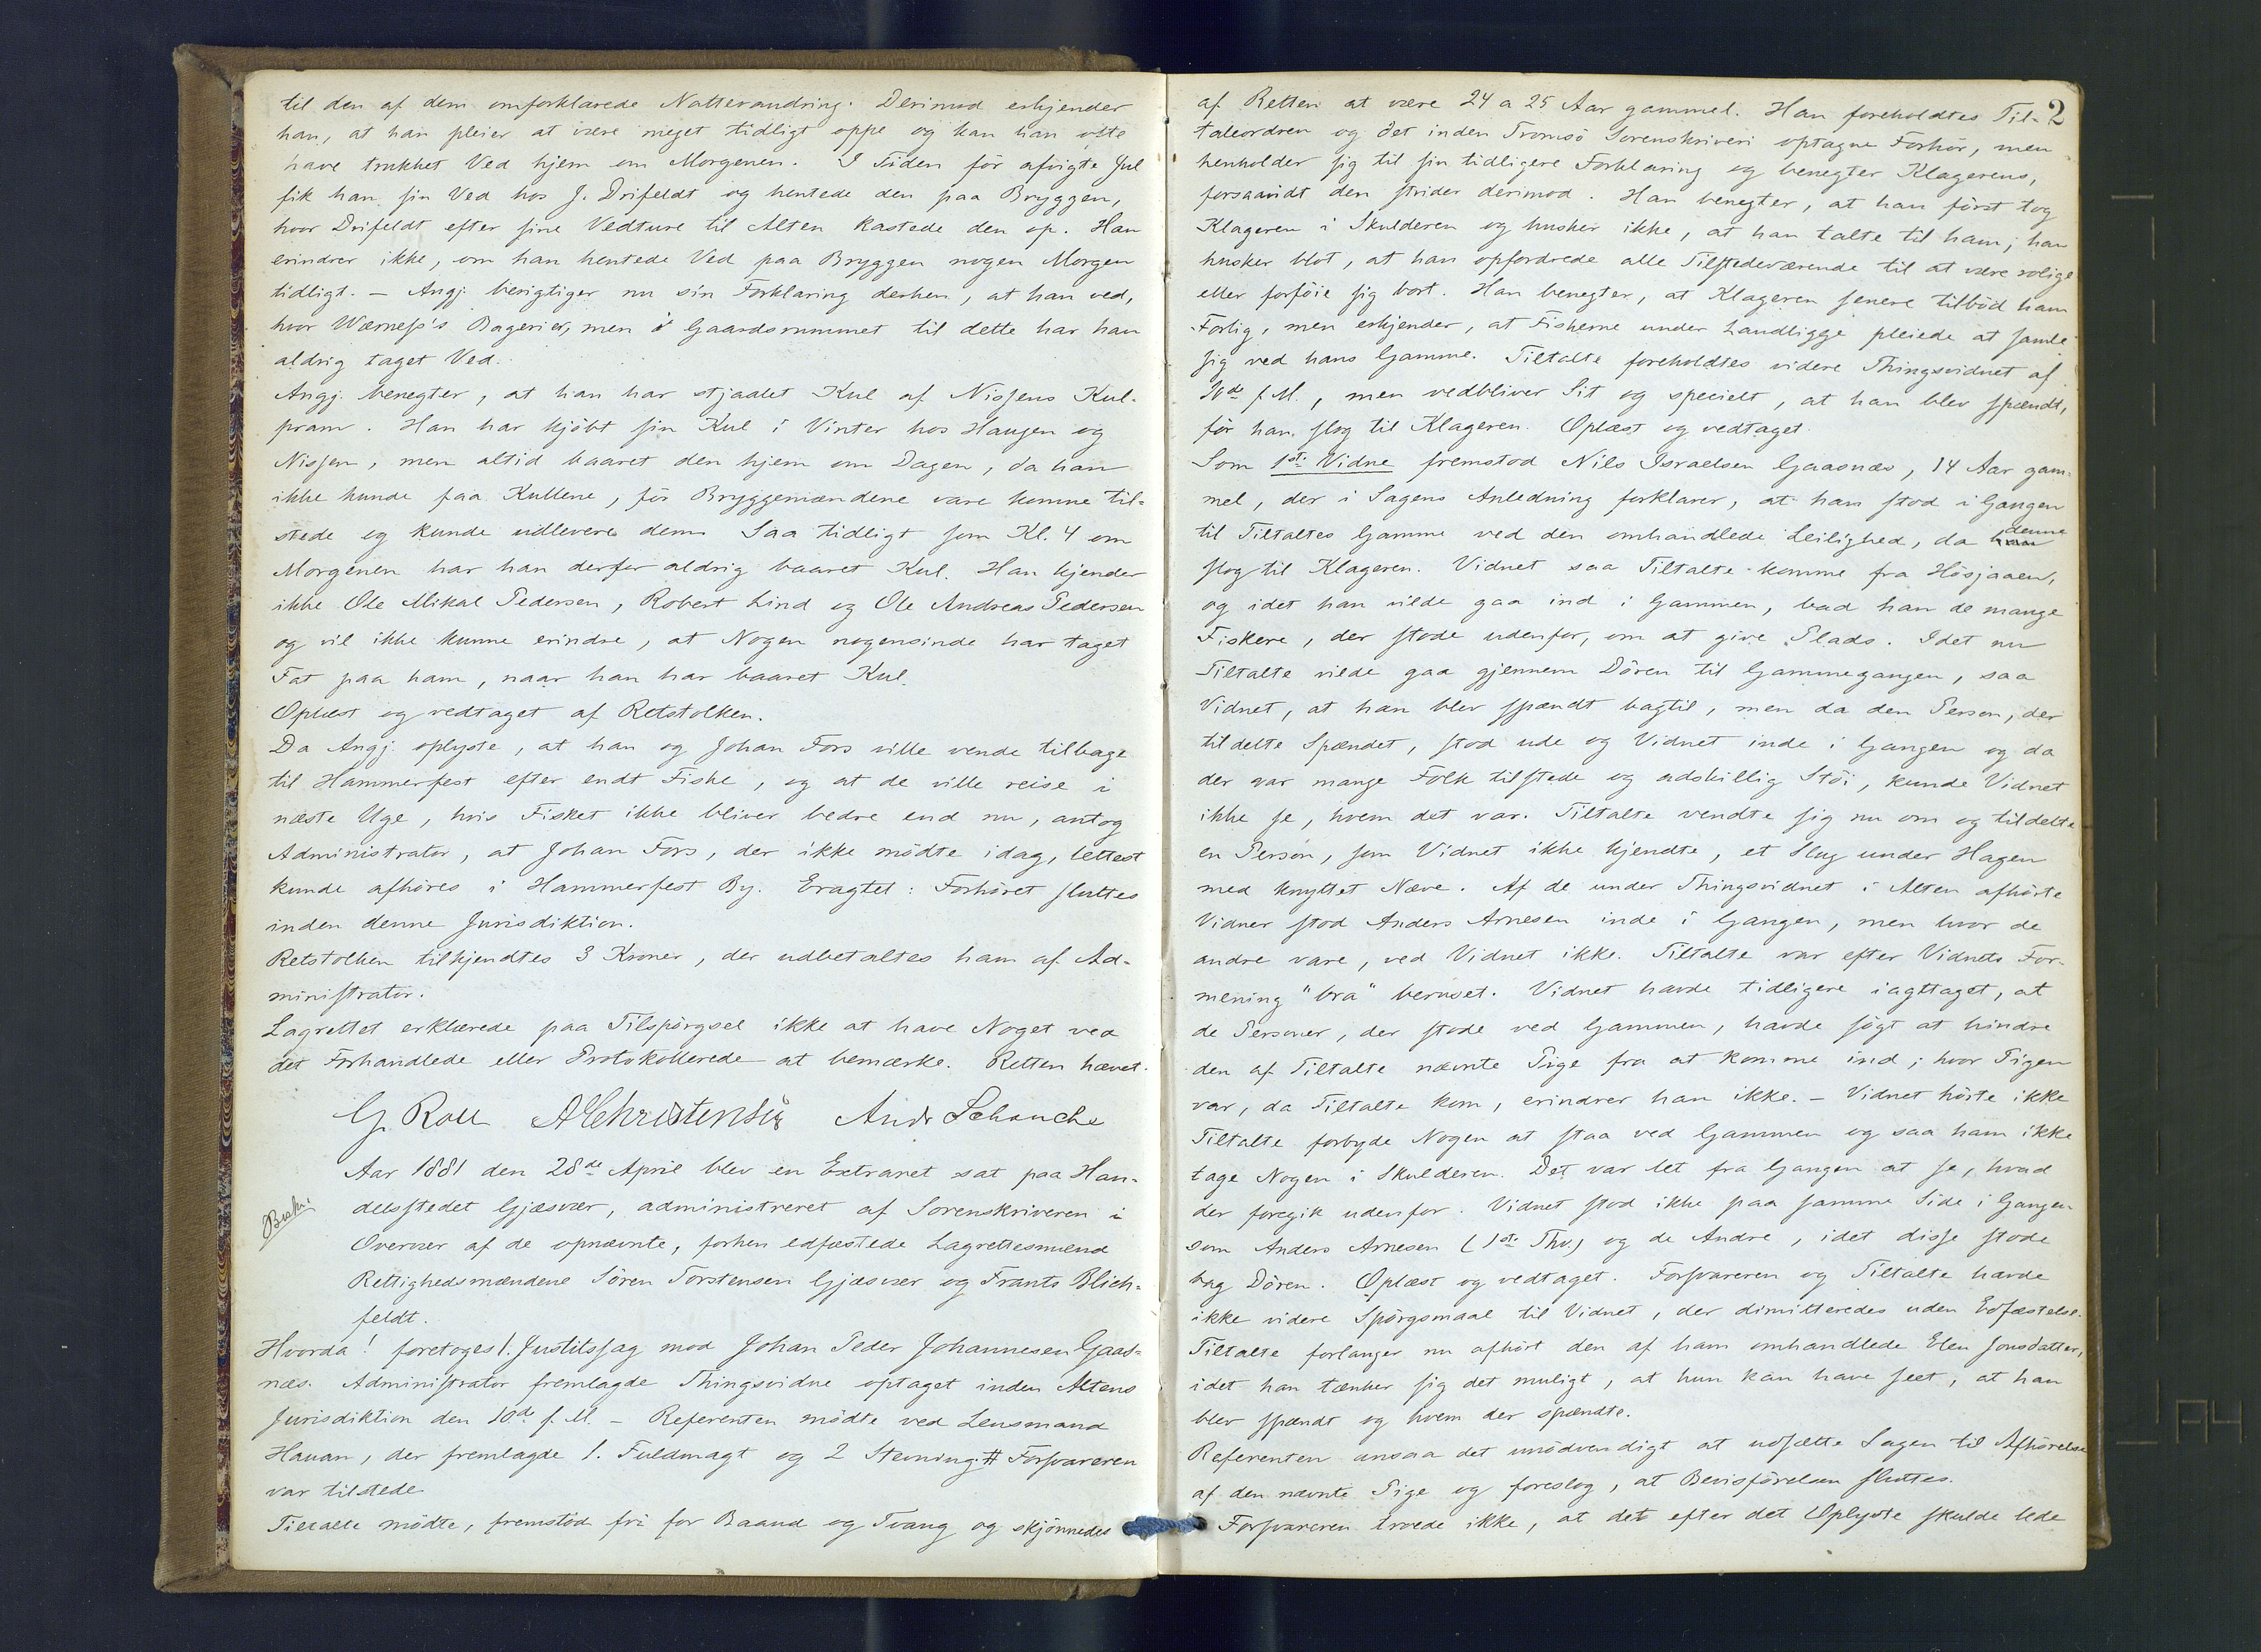 til den af dem omforklarede Nattevandring. Derimod erkjender
han, at han pleier at være meget tidligt oppe og kan han ofte
have trukket Ved hjem om Morgenen. I Tiden før afvigte Jul
fik han sin Ved hos J. Drifeldt og hentede den paa Bryggen,
hvor Drifeldt efter sine Vedture til Alten kastede den op. Han
erindrer ikke, om han hentede Ved paa Bryggen nogen Morgen
tidligt. – Angj. berigtiger nu sin Forklaring derhen, at han ved,
hvor Wærness's Bageri er, men i Gaardsrummet til dette har han
aldrig taget Ved.
Angj. benegter, at han har stjaalet Kul af Nissens Kul-
pram. Han har kjøbt sin Kul i Vinter hos Haugen og
Nissen, men altid baaret den hjem om Dagen, da han
ikke kunde faa Kullene, før Bryggemændene vare komne til-
stede og kunde udlevere dem. Saa tidligt som Kl. 4 om
Morgenen har han derfor aldrig baaret Kul. Han kjender
ikke Ole Mikal Pedersen, Robert Lind og Ole Andreas Pedersen
og vil ikke kunne erindre, at Nogen nogensinde har taget
Fat paa ham, naar han har baaret Kul.
Oplæst og vedtaget af Retstolken.
Da Angj. oplyste, at han og Johan Fors ville vende tilbage
til Hammerfest efter endt Fiske, og at de ville reise i
næste Uge, hvis Fisket ikke bliver bedre end nu, antog
Administrator, at Johan Fors, der ikke mödte idag, lettest
kunde afhöres i Hammerfest By. Eragtet: Forhöret sluttes
inden denne Jurisdiktion.
Retstolken tilkjendtes 3 Kroner, der udbetaltes ham af Ad-
ministrator.
Lagrettet erklærede paa Tilspörgsel ikke at have Noget ved
det Forhandlede eller Protokollerede at bemærke. Retten hævet.
G. Roll AChristensen Andr Schanche
Aar 1881 den 28de April blev en Extraret sat paa Han-
delsstedet Gjæsvær, administreret af Sorenskriveren i
Overvær af de opnævnte, forhen edfæstede Lagrettesmænd
Rettighedsmændene Sören Torstensen Gjæsvær og Frants Blich-
feldt.
Hvorda! foretoges 1. Justitssag mod Johan Peder Johannesen Gaas-
næs. Administrator fremlagde Thingsvidne optaget inden Altens
Jurisdiktion den 10de f. M. – Referenten mödte ved Lensmand
Hauan, der fremlagde 1. Fuldmagt og 2 Stevning. # Forsvareren
var tilstede
Tiltalte mödte, fremstod fri for Baand og Tvang og skjönnedes
2
af Retten at være 24 a 25 Aar gammel. Han foreholdtes Til-
taleordren og det inden Tromsö Sorenskriveri optagne Forhör, men
henholder sig til sin tidligere Forklaring og benegter Klagerens,
forsaavidt den strider derimod. Han benegter, at han först tog
Klageren i Skulderen og husker ikke, at han talte til ham; han
husker blot, at han opfordrede alle Tilstedeværende til at være rolige
eller forföie sig bort. Han benegter, at Klageren senere tilböd ham
Forlig, men erkjender, at Fiskerne under Landligge pleiede at samle
sig ved hans Gamme. Tiltalte foreholdtes videre Thingsvidnet af
10de f. M., men vedbliver Sit og specielt, at han blev spændt,
før han slog til Klageren. Oplæst og vedtaget.
Som 1ste Vidne fremstod Nils Israelsen Gaasnæs, 14 Aar gam-
mel, der i Sagens Anledning forklarer, at han stod i Gangen
til Tiltaltes Gamme ved den omhandlede Leilighed, da denne
slog til Klageren. Vidnet saa Tiltalte komme fra Hösjaaen,
og idet han vilde gaa ind i Gammen, bad han de mange
Fiskere, der stode udenfor, om at give Plads. Idet nu
Tiltalte vilde gaa gjennem Dören til Gammegangen, saa
Vidnet, at han blev spændt bagtil, men da den Person, der
tildelte Spændet, stod ude og Vidnet inde i Gangen og da
der var mange Folk tilstede og adskillig Stöi, kunde Vidnet
ikke se, hvem det var. Tiltalte vendte sig nu om og tildelte
en Person, som Vidnet ikke kjendte, et Slag under Hagen
med knyttet Næve. Af de under Thingsvidnet i Alten afhörte
Vidner stod Anders Arnesen inde i Gangen, men hvor de
andre vare, ved Vidnet ikke. Tiltalte var efter Vidnets For-
mening "bra" beruset. Vidnet havde tidligere iagttaget, at
de Personer, der stode ved Gammen, havde sögt at hindre
den af Tiltalte nævnte Pige fra at komme ind; hvor Pigen
var, da Tiltalte kom, erindrer han ikke. – Vidnet hörte ikke
Tiltalte forbyde Nogen at staa ved Gammen og saa ham ikke
tage Nogen i Skulderen. Det var let fra Gangen at se, hvad
der foregik udenfor. Vidnet stod ikke paa samme Side i Gangen
som Anders Arnesen (1ste Thv.) og de Andre, idet disse stode
bag Dören. Oplæst og vedtaget. Forsvareren og Tiltalte havde
ikke videre Spörgsmaal til Vidnet, der dimitteredes uden Edfæstelse.
Tiltalte forlanger nu afhört den af ham omhandlede Elen Jonsdatter,
idet han tænker sig det muligt, at hun kan have seet, at han
blev spændt og hvem der spændte.
Referenten ansaa det unödvendigt at udsætte Sagen til Afhörelse
af den nævnte Pige og foreslog, at Bevisförelsen sluttes.
Forsvareren troede ikke, at det efter det Oplyste skulde lede